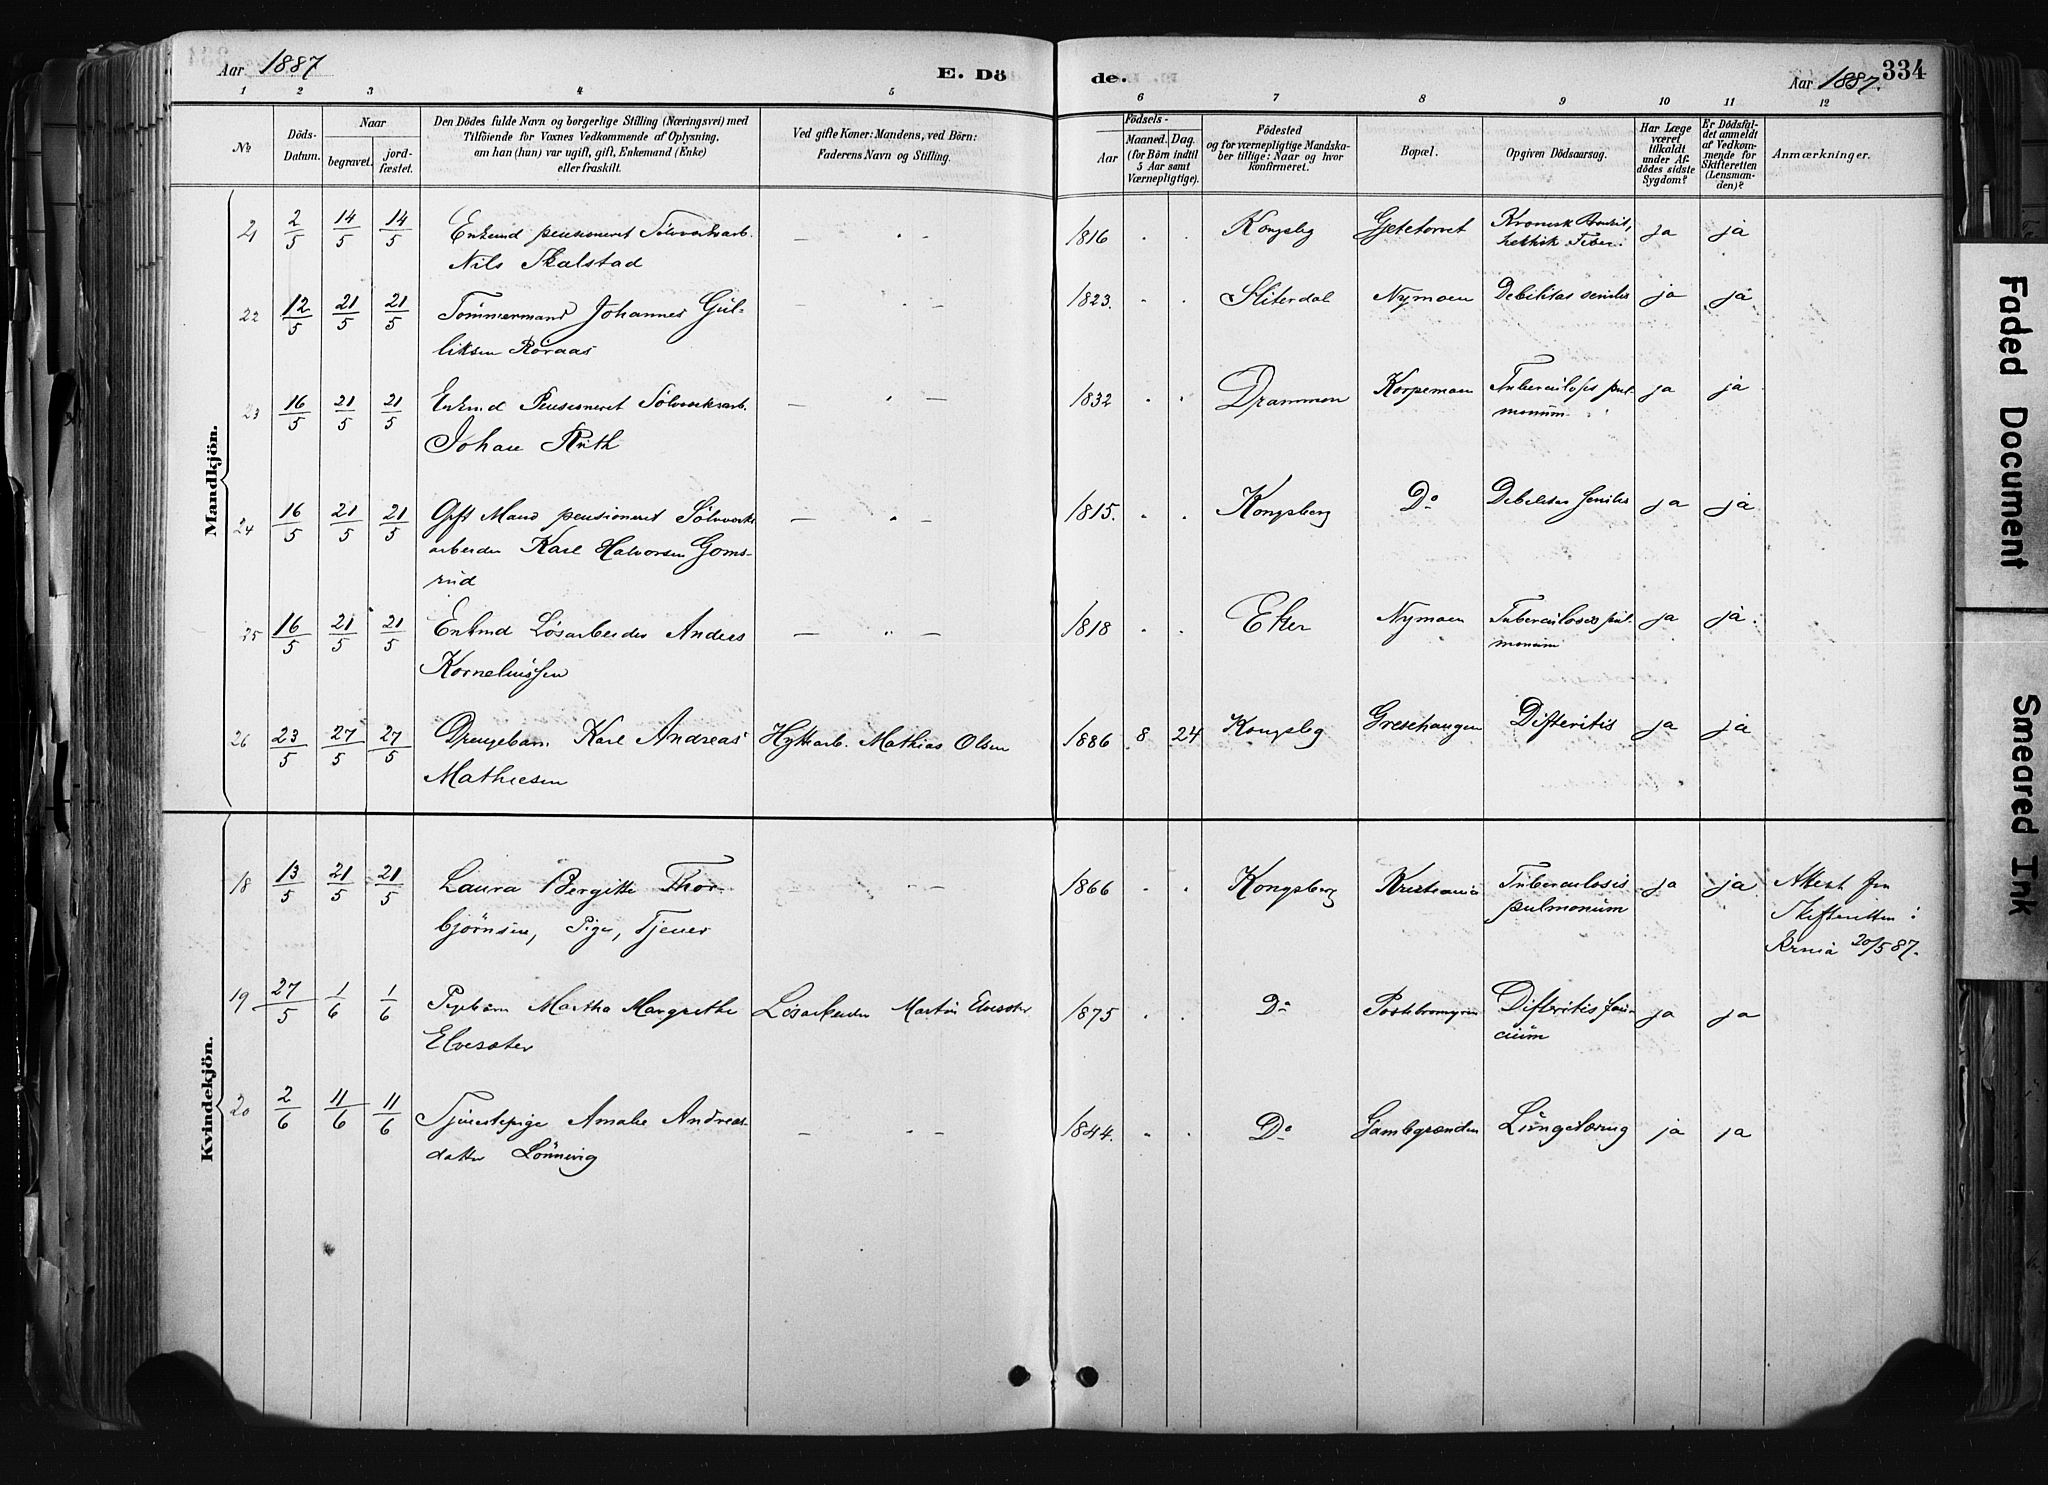 Aar 1887 E. Dö
de. Aar 1887. 334
1 2 3 4 5 6 7 8 9 10 11 12
No
Döds-Datum.
Naar
begravet.
jordfæstet.
Den Dödes fulde Navn og borgerlige Stilling (Næringsvei) med
Tilföiende for Voxnes Vedkommende af Oplysning,
om han (hun) var ugift, gift, Enkemand (Enke)
eller fraskilt.
Ved gifte Koner: Mandens, ved Börn:
Faderens Navn og Stilling.
Födsels-
Aar
Maaned. Dag.
(for Börn indtil
5 Aar samt
Værnepligtige).
Födested
og for værnepligtige Mandskaber tillige: Naar og hvor
konfirmeret.
Bopæl.
Opgiven Dödsaarsag.
Har Læge
været
tilkaldt
under Afdödes sidste
Sygdom?
Er Dödsfaldet anmeldt
af Vedkommende for
Skifteretten
(Lensmanden)?
Anmærkninger.
Mandkjön.
21 2/5 14/5 14/5 Enkemd pensioneret Sölvverksarb. — " — 1816 " " Kongsbg Gjetetorvet Kronisk Bronkit, ja ja
Nils Skalstad hektisk Feber.
22 12/5 21/5 21/5 Tømmermand Johannes Gul- " — 1823. " " Nymoen Debilitas senilis ja ja
liksen Røraas
23 16/5 21/5 21/5 Enkmd Pensioneret Sölvverksarb. — " — 1832 " " Drammen Korpemoen Tuberculosis pul- ja ja
Johan monum
24 16/5 21/5 21/5 Gift Mand pensioneret Sölvverks — " — 1815. " " Kongsberg Do Debilitas senilis ja ja
arbeider Karl Halvorsen Goms-
rud
25 16/5 21/5 21/5 Enkmd Løsarbeider Anders — " — 1818 " " Eker Nymoen Tuberculosis pul- ja ja.
Korneliussen monum
26 23/5 27/5 27/5 Drengebarn Karl Andreas Hyttearb. Mathias Olsen 1886 8 24 Kongsbg Gresehaugen Difteritis ja ja
Mathiesen
Kvindekjön.
18 13/5 21/5 21/5 Laura Bergitte Thor- " — 1866 " " Kongsberg Kristiania Tuberculosis ja ja Attest fra
bjørnsen, Pige, Tjener pulmonum Skifteretten i
Krnia 20/5 87.
19 27/5 1/6 1/6 Pigebarn Martha Margrethe Løsarbeider Martin Elvesæter 1875 " " Do Difteritis fau- ja ja
Elvesæter cium
20 2/6 11/6 11/6 Tjenestepige Amalie Andreas- — " — 1844. " " Do Gamlegrænden Lungetæring ja ja
datter Lönnevig
Faded Document
Smeared Ink